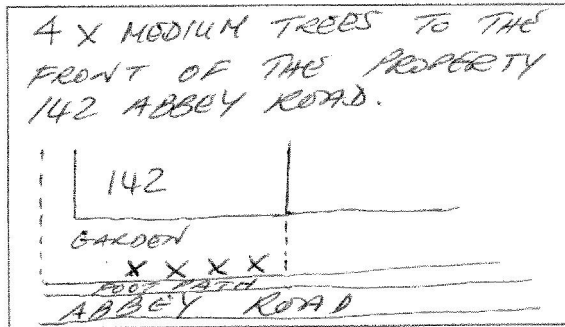 4 X MEDIUM TREES TO THE
FRONT OF THE PROPERTY
142 ABBEY ROAD.
142
GARDEN
X X X X
FOOT PATH
ABBEY ROAD